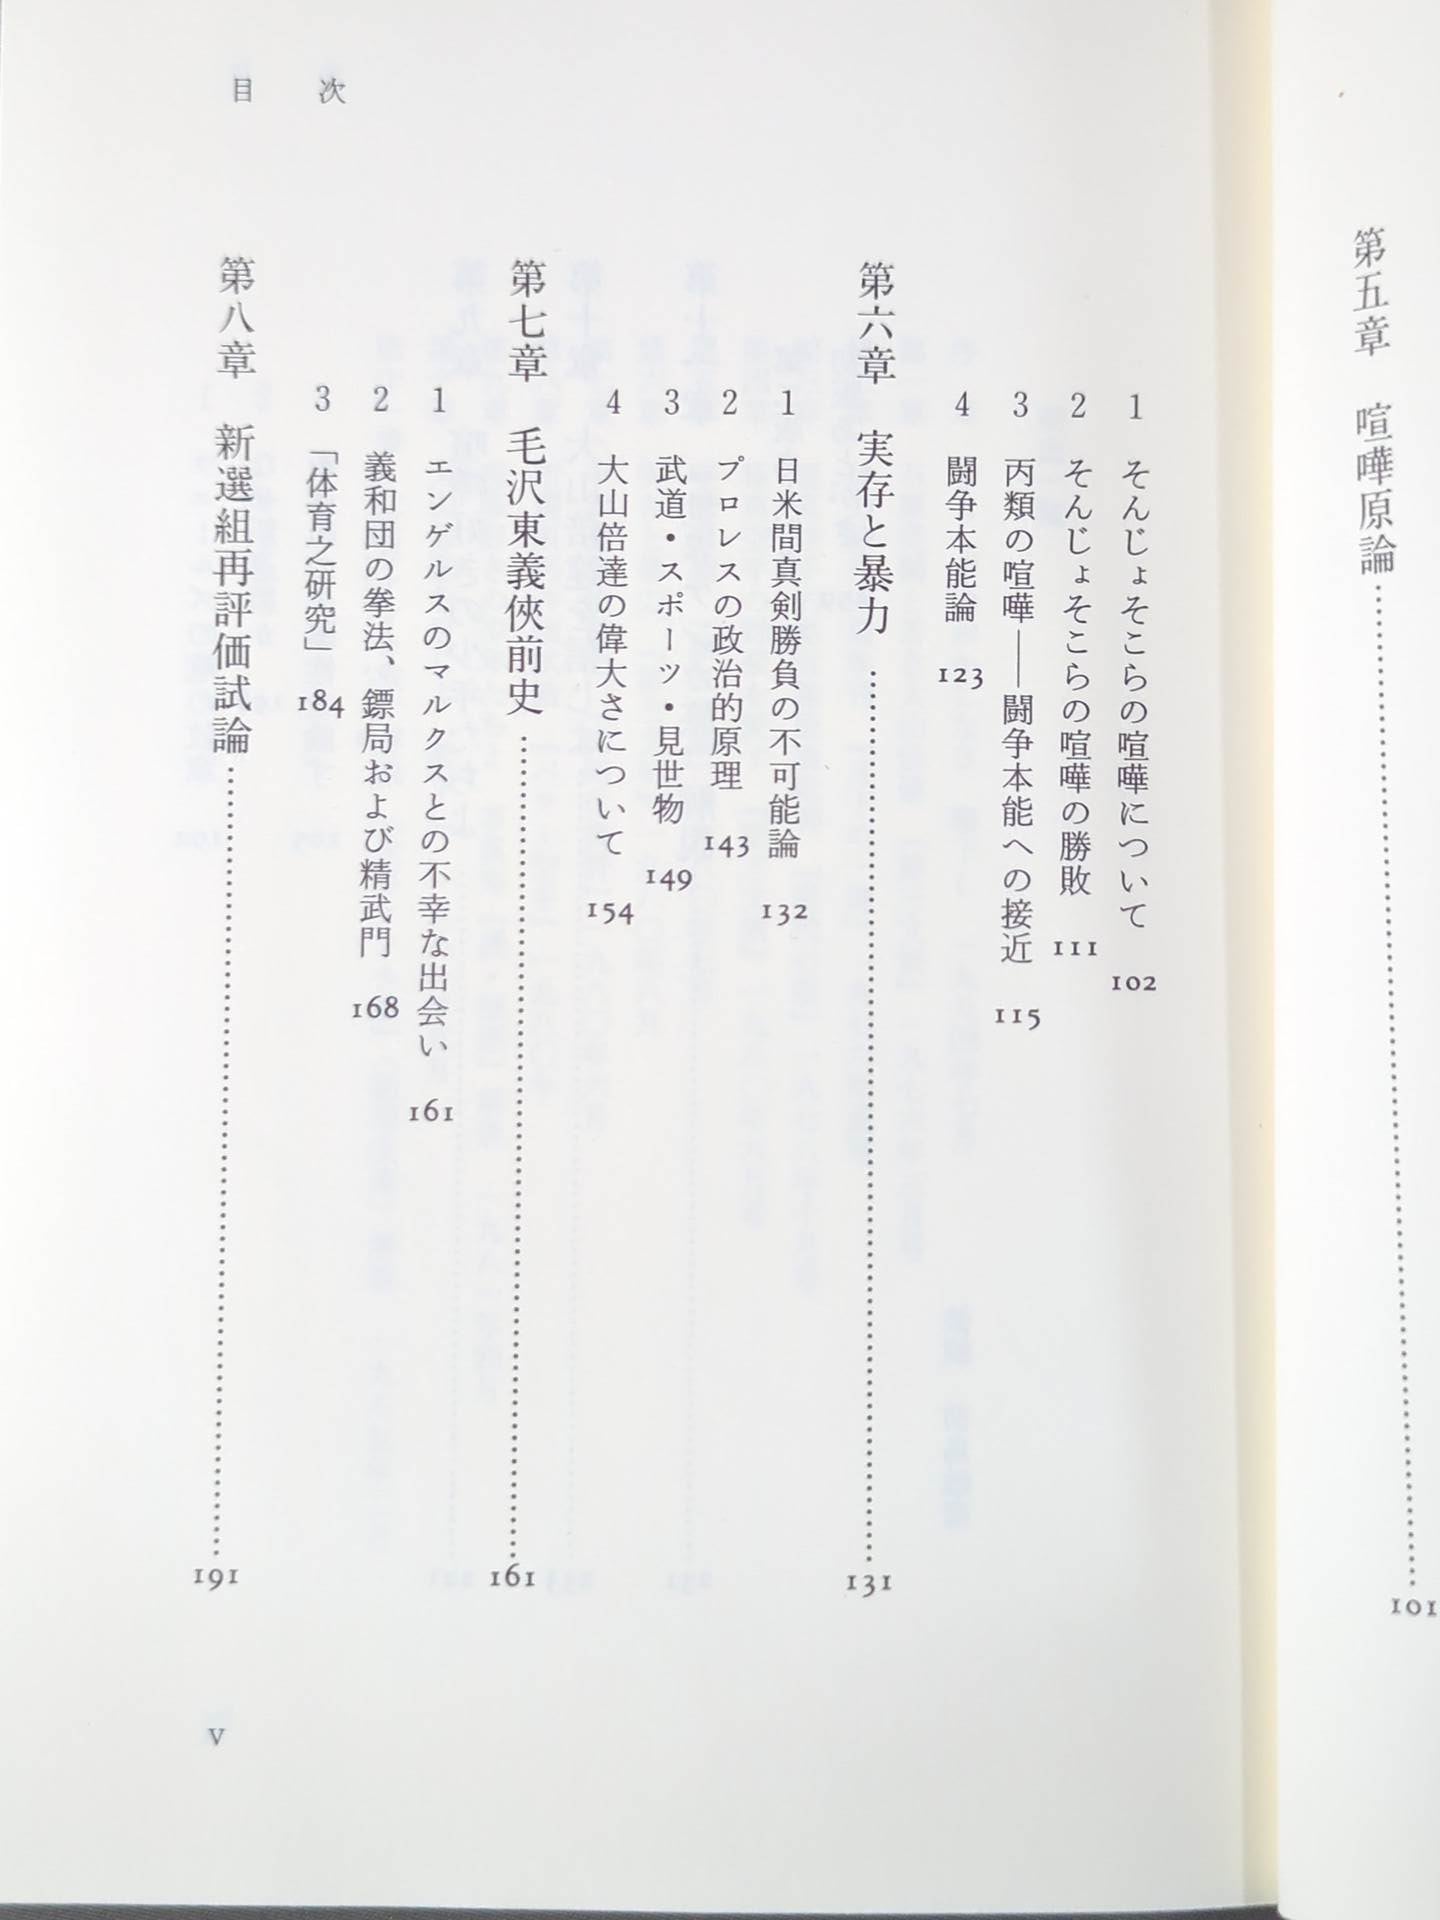 目次
第五章　喧嘩原論 101
1　そんじょそこらの喧嘩について　102
2　そんじょそこらの喧嘩の勝敗　111
3　丙類の喧嘩――闘争本能への接近　115
4　闘争本能論　123
第六章　実存と暴力 131
1　日米間真剣勝負の不可能論　132
2　プロレスの政治的原理　143
3　武道・スポーツ・見世物　149
4　大山倍達の偉大さについて　154
第七章　毛沢東義俠前史 161
1　エンゲルスのマルクスとの不幸な出会い　161
2　義和団の拳法、鏢局および精武門　168
3　「体育之研究」　184
第八章　新選組再評価試論 191
v